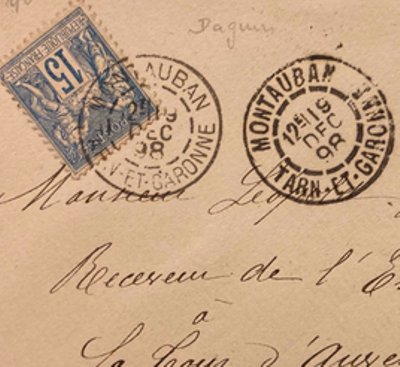 Daguin
15
REPUBLIQUE FRANÇAISE
POSTES
MONTAUBAN
12E 19
DEC
98
TARN-ET-GARONNE
MONTAUBAN
12E 19
DEC
98
TARN-ET-GARONNE
Monsieur
Receveur de l'E
à
La Tour d'Auver